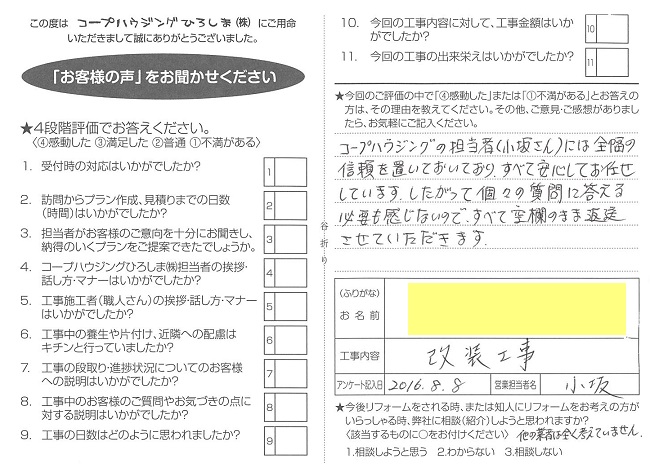 この度は コープハウジングひろしま(株) にご用命
いただきまして誠にありがとうございました。
「お客様の声」をお聞かせください
★4段階評価でお答えください。
〈④感動した ③満足した ②普通 ①不満がある〉
1. 受付時の対応はいかがでしたか?
1
2. 訪問からプラン作成、見積りまでの日数
(時間)はいかがでしたか?
2
3. 担当者がお客様のご意向を十分にお聞きし、
納得のいくプランをご提案できたでしょうか。
3
4. コープハウジングひろしま㈱担当者の挨拶・
話し方・マナーはいかがでしたか?
4
5. 工事施工者(職人さん)の挨拶・話し方・マナー
はいかがでしたか?
5
6. 工事中の養生や片付け、近隣への配慮は
キチンと行っていましたか?
6
7. 工事の段取り・進捗状況についてのお客様
への説明はいかがでしたか?
7
8. 工事中のお客様のご質問やお気づきの点に
対する説明はいかがでしたか?
8
9. 工事の日数はどのように思われましたか?
9
谷折り
10. 今回の工事内容に対して、工事金額はいか
がでしたか?
10
11. 今回の工事の出来栄えはいかがでしたか?
11
★今回のご評価の中で「④感動した」または「①不満がある」とお答えの
方は、その理由を教えてください。その他、ご意見・ご感想がありまし
たら、お気軽にご記入ください。
コープハウジングの担当者(小坂さん)には全幅の
信頼を置いておいており、すべて安心してお任せ
しています。したがって個々の質問に答える
必要も感じないので、すべて空欄のまま返送
させていただきます。
(ふりがな)
お名前
工事内容
改装工事
アンケート記入日
2016.8.8
営業担当者名
小坂
★今後リフォームをされる時、または知人にリフォームをお考えの方が
いらっしゃる時、弊社に相談(紹介)しようと思われますか?
〈該当するものに○をお付けください〉
他の業者は全く考えていません。
1.相談しようと思う 2.わからない 3.相談しない